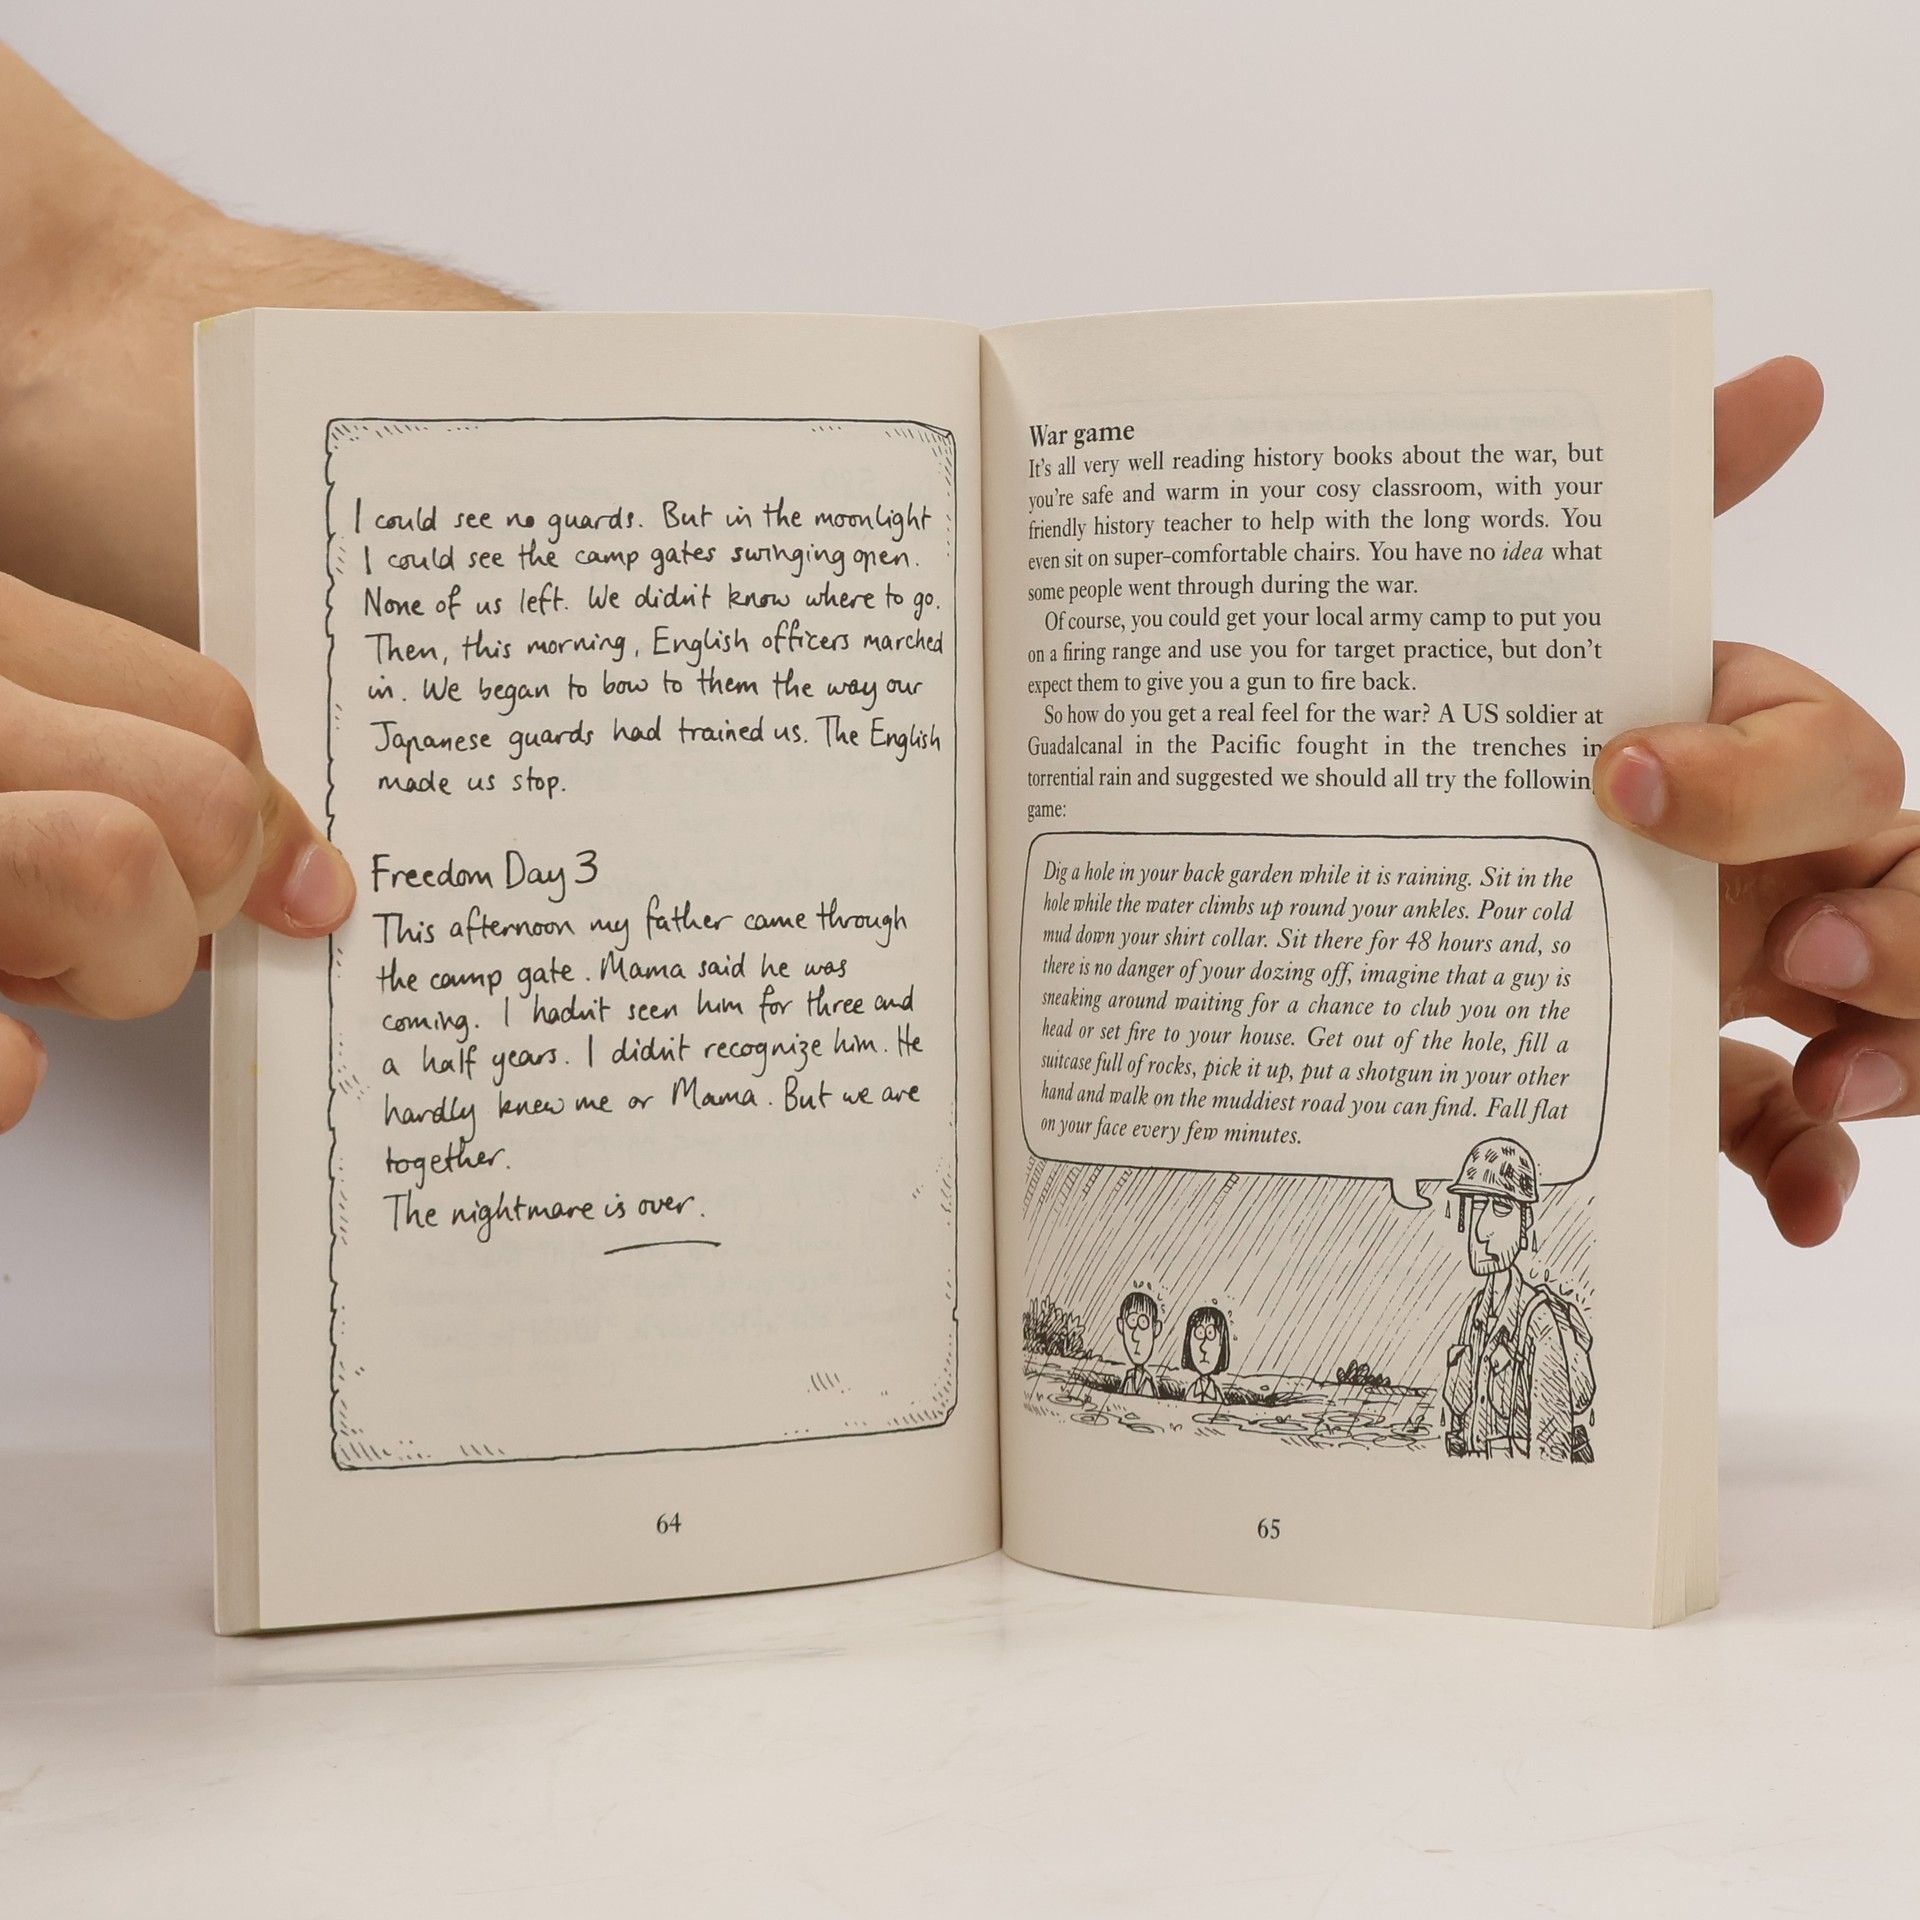 I could see no guards. But in the moonlight
I could see the camp gates swinging open.
None of us left. We didn't know where to go.
Then, this morning, English officers marched
in. We began to bow to them the way our
Japanese guards had trained us. The English
made us stop.
Freedom Day 3
This afternoon my father came through
the camp gate. Mama said he was
coming. I hadn't seen him for three and
a half years. I didn't recognize him. He
hardly knew me or Mama. But we are
together.
The nightmare is over.
64
War game
It's all very well reading history books about the war, but
you're safe and warm in your cosy classroom, with your
friendly history teacher to help with the long words. You
even sit on super-comfortable chairs. You have no idea what
some people went through during the war.
Of course, you could get your local army camp to put you
on a firing range and use you for target practice, but don't
expect them to give you a gun to fire back.
So how do you get a real feel for the war? A US soldier at
Guadalcanal in the Pacific fought in the trenches in
torrential rain and suggested we should all try the following
game:
Dig a hole in your back garden while it is raining. Sit in the
hole while the water climbs up round your ankles. Pour cold
mud down your shirt collar. Sit there for 48 hours and, so
there is no danger of your dozing off, imagine that a guy is
sneaking around waiting for a chance to club you on the
head or set fire to your house. Get out of the hole, fill a
suitcase full of rocks, pick it up, put a shotgun in your other
hand and walk on the muddiest road you can find. Fall flat
on your face every few minutes.
65